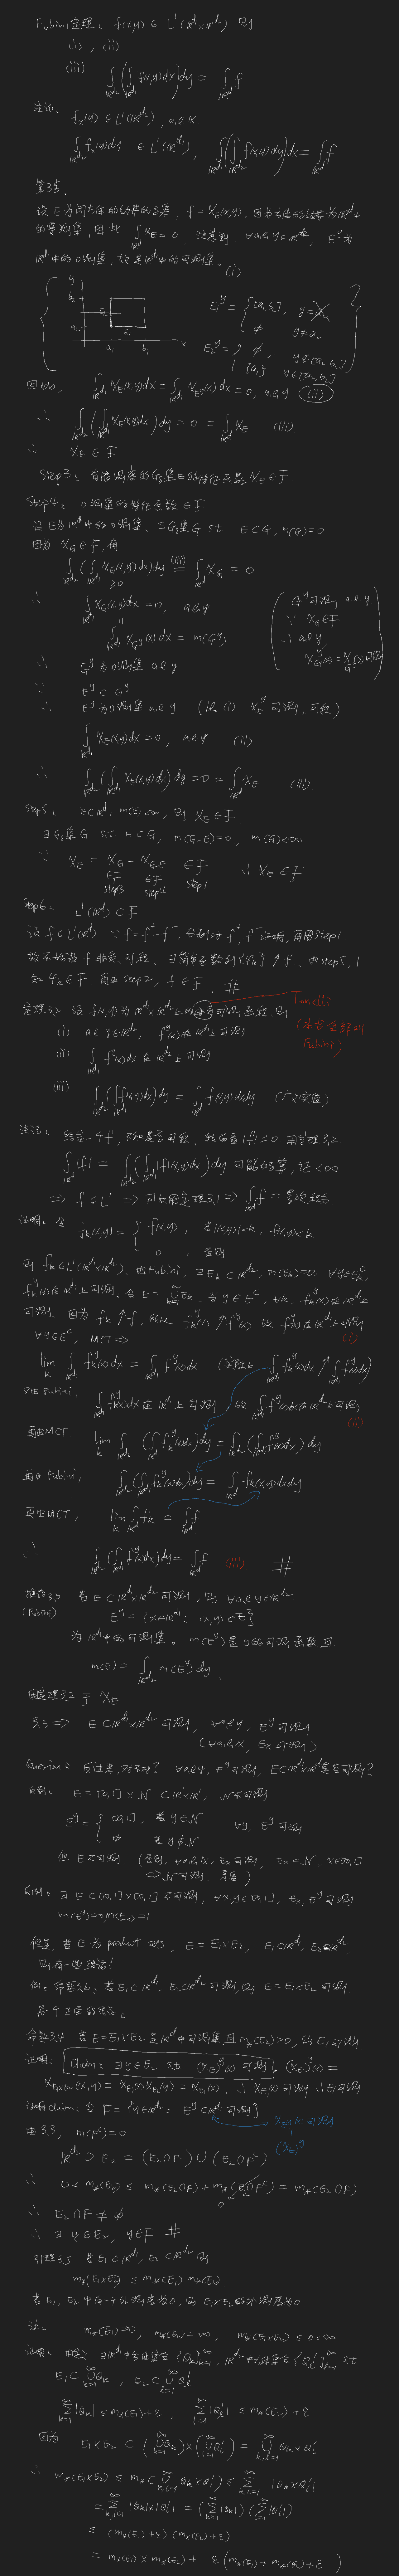 Fubini定理: f(x,y) ∈ L¹(ℝ^{d1}×ℝ^{d2}) 则
(i), (ii)
(iii) ∫_{ℝ^{d2}} (∫_{ℝ^{d1}} f(x,y)dx) dy = ∫_{ℝ^d} f
注记: f_x(y) ∈ L¹(ℝ^{d2}), a.e x
∫_{ℝ^{d2}} f_x(y)dy ∈ L¹(ℝ^{d1}), ∫_{ℝ^{d1}} (∫_{ℝ^{d2}} f(x,y)dy) dx = ∫_{ℝ^d} f
设E为闭方体的边界的子集, f = χ_E(x,y). 因为方体的边界为ℝ^d中
的零测集, 因此 ∫_{ℝ^d} χ_E = 0. 注意到 ∀ a.e y∈ℝ^{d2}, E^y为
ℝ^{d1}中的0测集, 故是ℝ^{d1}中的可测集. (i)
y
b₂
a₂
E
E₁
a₁ b₁ x
E₁^y = { [a₁,b₁], y = a₂
∅ y≠a₂
E₂^y = { ∅, y∉[a₂,b₂]
{a₁} y∈[a₂,b₂]
因此, ∫_{ℝ^{d1}} χ_E(x,y)dx = ∫_{ℝ^{d1}} χ_{E^y}(x)dx = 0, a.e y (ii)
∴ ∫_{ℝ^{d2}} (∫_{ℝ^{d1}} χ_E(x,y)dx) dy = 0 = ∫_{ℝ^d} χ_E (iii)
∴ χ_E ∈ F
Step3: 有限测度的G_δ集E的特征函数 χ_E ∈ F
Step4: 0测集的特征函数 ∈ F
设E为ℝ^d中的0测集, ∃ G_δ集 G st E⊂G, m(G)=0
因为 χ_G ∈ F, 有
∫_{ℝ^{d2}} (∫_{ℝ^{d1}} χ_G(x,y)dx) dy (iii)= ∫_{ℝ^d} χ_G = 0
≥0
∴ ∫_{ℝ^{d1}} χ_G(x,y)dx = 0, a.e y
∫_{ℝ^{d1}} χ_{G^y}(x)dx = m(G^y)
( G^y可测 a.e y
∵ χ_G ∈ F
∴ a.e y,
χ_G^y(x) = χ_{G^y}(x) 可测 )
∴ G^y为0测集 a.e y
∵ E^y ⊂ G^y
∴ E^y为0测集 a.e y (i.e. (i) χ_E^y 可测, 可积)
∫_{ℝ^{d1}} χ_E(x,y)dx = 0, a.e y (ii)
∴ ∫_{ℝ^{d2}} (∫_{ℝ^{d1}} χ_E(x,y)dx) dy = 0 = ∫_{ℝ^d} χ_E (iii)
Step5: E⊂ℝ^d, m(E)<∞, 则 χ_E ∈ F
∃ G_δ集 G st E⊂G, m(G-E)=0, m(G)<∞
∵ χ_E = χ_G - χ_{G-E} ∈ F ∴ χ_E ∈ F
∈F ∈F
step3 step4 step1
Step6: L¹(ℝ^d) ⊂ F
设 f∈L¹(ℝ^d) ∵ f = f⁺ - f⁻, 分别对 f⁺, f⁻证明, 再用Step1
故不妨设 f 非负, 可积. ∃简单函数列{φ_k} ↑ f. 由step5, 1
知 φ_k∈F 再由step2, f∈F. #
定理3.2 设 f(x,y)为ℝ^{d1}×ℝ^{d2}上的非负可测函数, 则
Tonelli
(本书全部叫
Fubini)
(i) a.e y∈ℝ^{d2}, f^y(x)在ℝ^{d1}上可测
(ii) ∫_{ℝ^{d1}} f^y(x)dx 在ℝ^{d2}上可测
(iii) ∫_{ℝ^{d2}} (∫_{ℝ^{d1}} f(x,y)dx) dy = ∫_{ℝ^d} f(x,y)dxdy (广义实值)
∫_{ℝ^d} |f| = ∫_{ℝ^{d2}} (∫_{ℝ^{d1}} |f(x,y)|dx) dy 可能好算, 证<∞
⇒ f∈L¹ ⇒ 可以用定理3.1 ⇒ ∫_{ℝ^d} f = 累次积分
证明: 令 f_k(x,y) = { f(x,y), 若|(x,y)|<k, f(x,y)<k
0, 否则
则 f_k∈L¹(ℝ^{d1}×ℝ^{d2}). 由Fubini, ∃ E_k⊂ℝ^{d2}, m(E_k)=0. ∀y∈E_k^c,
f_k^y(x)在ℝ^{d1}上可测. 令 E = ∪_{k=1}^∞ E_k, 当 y∈E^c, ∀k, f_k^y(x)在ℝ^{d1}上
可测. 因为 f_k ↑ f, f_k^y(x) ↑ f^y(x) 故 f^y(x)在ℝ^{d1}上可测
(i)
∀y∈E^c, MCT ⇒
lim_k ∫_{ℝ^{d1}} f_k^y(x)dx = ∫_{ℝ^{d1}} f^y(x)dx (实际上 ∫_{ℝ^{d1}} f_k^y(x)dx ↑ ∫_{ℝ^{d1}} f^y(x)dx)
又由Fubini, ∫_{ℝ^{d1}} f_k^y(x)dx在ℝ^{d2}上可测, 故 ∫_{ℝ^{d1}} f^y(x)dx在ℝ^{d2}上可测
(ii)
再由MCT lim_k ∫_{ℝ^{d2}} (∫_{ℝ^{d1}} f_k^y(x)dx) dy = ∫_{ℝ^{d2}} (∫_{ℝ^{d1}} f^y(x)dx) dy
再由Fubini, ∫_{ℝ^{d2}} (∫_{ℝ^{d1}} f_k^y(x)dx) dy = ∫_{ℝ^d} f_k(x,y)dxdy
再由MCT, lim_k ∫_{ℝ^d} f_k = ∫_{ℝ^d} f
∴ ∫_{ℝ^{d2}} (∫_{ℝ^{d1}} f^y(x)dx) dy = ∫_{ℝ^d} f (iii) #
推论3.3 若E⊂ℝ^{d1}×ℝ^{d2}可测, 则 ∀ a.e y∈ℝ^{d2}
(Fubini) E^y = {x∈ℝ^{d1}: (x,y)∈E}
为ℝ^{d1}中的可测集. m(E^y)是y的可测函数且
m(E) = ∫_{ℝ^{d2}} m(E^y)dy.
用定理3.2于 χ_E
3.3 ⇒ E⊂ℝ^{d1}×ℝ^{d2}可测, ∀a.e y, E^y可测
(∀a.e x, E_x可测)
Question: 反过来, 对不对? ∀a.e y, E^y可测, E⊂ℝ^{d1}×ℝ^{d2}是否可测?
反例: E = [0,1]×N ⊂ℝ¹×ℝ¹, N不可测
E^y = { [0,1], 若y∈N ∀y, E^y可测
∅ 若y∉N
但E不可测 (否则, ∀a.e x, E_x可测, E_x = N, x∈[0,1]
⇒ N可测, 矛盾)
反例: ∃ E⊂[0,1]×[0,1]不可测, ∀x,y∈[0,1], E_x, E^y可测
m(E^y)=0, m(E_x)=1
但是, 若E为product sets, E = E₁×E₂, E₁⊂ℝ^{d1}, E₂⊂ℝ^{d2},
则有一些结论!
例: 命题3.6: 若E₁⊂ℝ^{d1}, E₂⊂ℝ^{d2}可测, 则 E = E₁×E₂可测
命题3.4 若E=E₁×E₂是ℝ^d中可测集且 m_*(E₂)>0, 则E₁可测
证明: claim: ∃y∈E₂ st (χ_E)^y(x) 可测. (χ_E)^y(x) =
χ_{E₁×E₂}(x,y) = χ_{E₁}(x)χ_{E₂}(y) = χ_{E₁}(x), ∴ χ_{E₁}(x)可测 ∴ E₁可测
证明claim: 令 F = {y∈ℝ^{d2}: E^y⊂ℝ^{d1}可测}
χ_{E^y}(x)可测
(χ_E)^y
由3.3, m(F^c)=0
ℝ^{d2} ⊃ E₂ = (E₂∩F) ∪ (E₂∩F^c)
∴ 0 < m_*(E₂) ≤ m_*(E₂∩F) + m_*(E₂∩F^c) = m_*(E₂∩F)
0
∴ E₂∩F ≠ ∅
∴ ∃ y∈E₂, y∈F #
引理3.5 若E₁⊂ℝ^{d1}, E₂⊂ℝ^{d2} 则
m_*(E₁×E₂) ≤ m_*(E₁) m_*(E₂)
若E₁, E₂中有一个外测度为0, 则 E₁×E₂的外测度为0
注: m_*(E₁)=0, m_*(E₂)=∞, m_*(E₁×E₂) ≤ 0×∞
证明: 由定义 ∃ℝ^{d1}中方体集合{Q_k}_{k=1}^∞, ℝ^{d2}中方体集合{Q'_l}_{l=1}^∞ st
E₁⊂∪_{k=1}^∞ Q_k, E₂⊂∪_{l=1}^∞ Q'_l
∑_{k=1}^∞ |Q_k| ≤ m_*(E₁)+ε, ∑_{l=1}^∞ |Q'_l| ≤ m_*(E₂)+ε
因为 E₁×E₂ ⊂ (∪_{k=1}^∞ Q_k)×(∪_{l=1}^∞ Q'_l) = ∪_{k,l=1}^∞ Q_k×Q'_l
∴ m_*(E₁×E₂) ≤ m_*(∪_{k,l=1}^∞ Q_k×Q'_l) ≤ ∑_{k,l=1}^∞ |Q_k×Q'_l|
= ∑_{k,l=1}^∞ |Q_k|×|Q'_l| = (∑_{k=1}^∞ |Q_k|)(∑_{l=1}^∞ |Q'_l|)
≤ (m_*(E₁)+ε)(m_*(E₂)+ε)
= m_*(E₁)×m_*(E₂) + ε(m_*(E₁)+m_*(E₂)+ε)